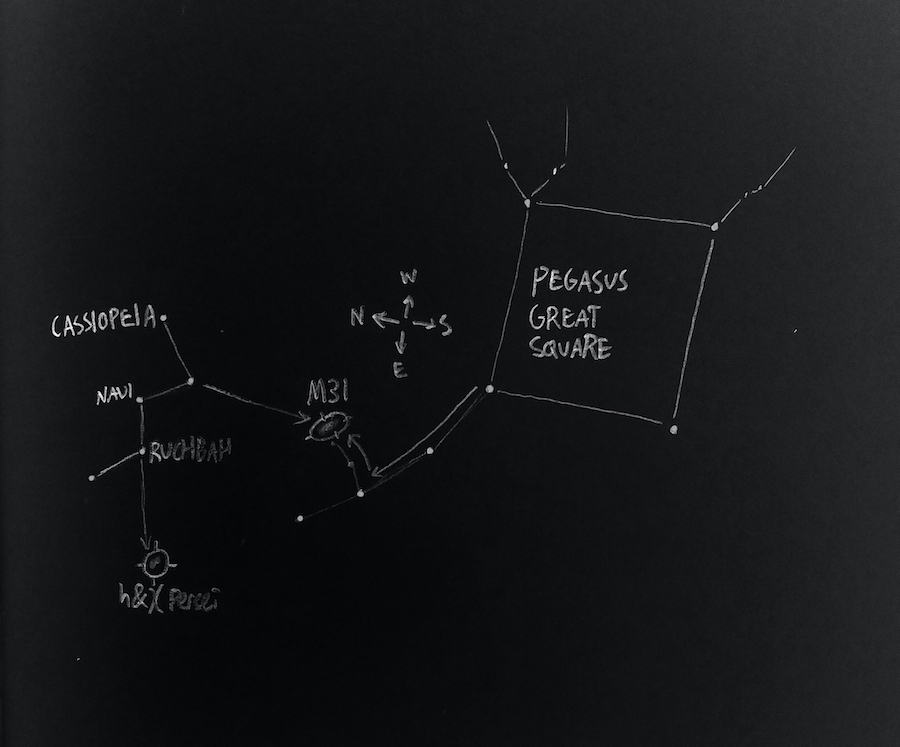 PEGASUS
GREAT
SQUARE
W
N
S
E
CASSIOPEIA
NAVI
M31
RUCHBAH
h&χ Persei